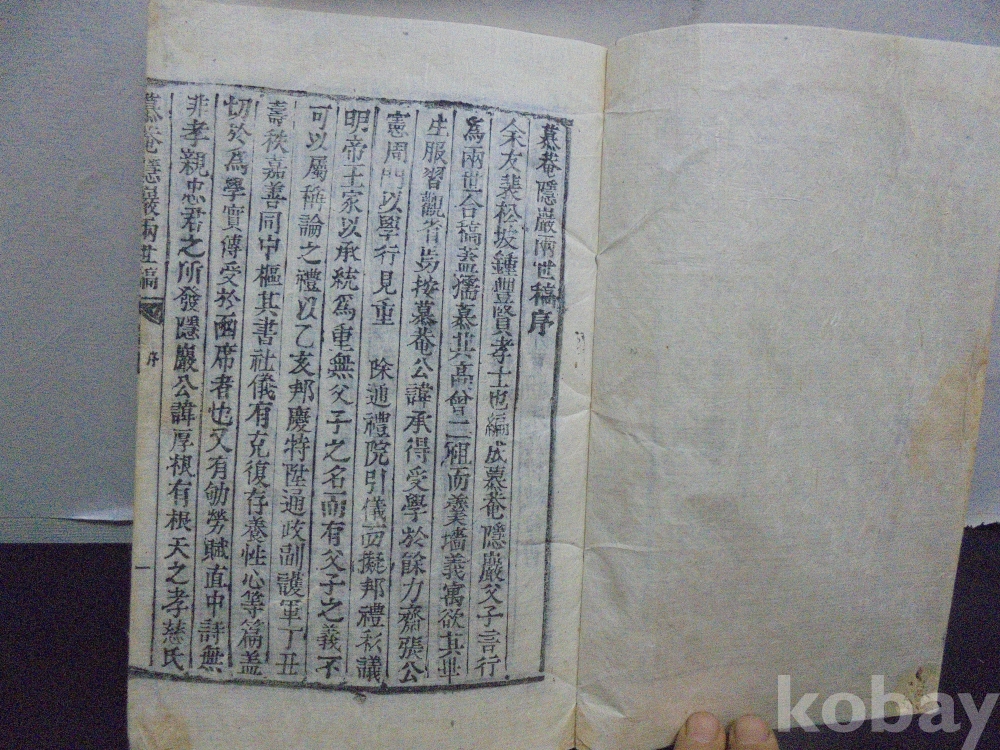 慕菴隱巖兩世稿序
余友裴松坡鍾豐賢孝士也編成慕菴隱巖父子言行
爲兩世合稿盖孺慕其高曾二祖而羹墻義寓欲其世
生服習觀省焉按慕菴公諱承得受學於餘力齋張公
憲周門以學行見重 除通禮院引儀而擬邦禮私議
明帝王家以承統爲重無父子之名而有父子之義不
可以屬稱論之禮以乙亥邦慶特陞通政副護軍丁丑
壽秩嘉善同中樞其書社儀有充復存養性心等篇盖
切於爲學實傳受於函席者也又有劬勞賦直中詩無
非孝親忠君之所發隱巖公諱厚根有根天之孝慈氏
慕菴隱巖兩世稿
序
一
kobay